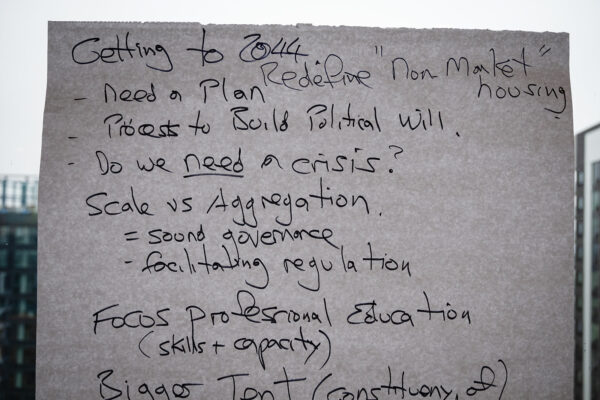 Getting to 2044
Redefine "Non Market"
housing
- Need a Plan
- Process to Build Political Will.
- Do we need a crisis?
Scale vs Aggregation.
= sound governance
- facilitating regulation
Focus Professional Education
(skills + capacity)
Bigger Tent (constituency, of)